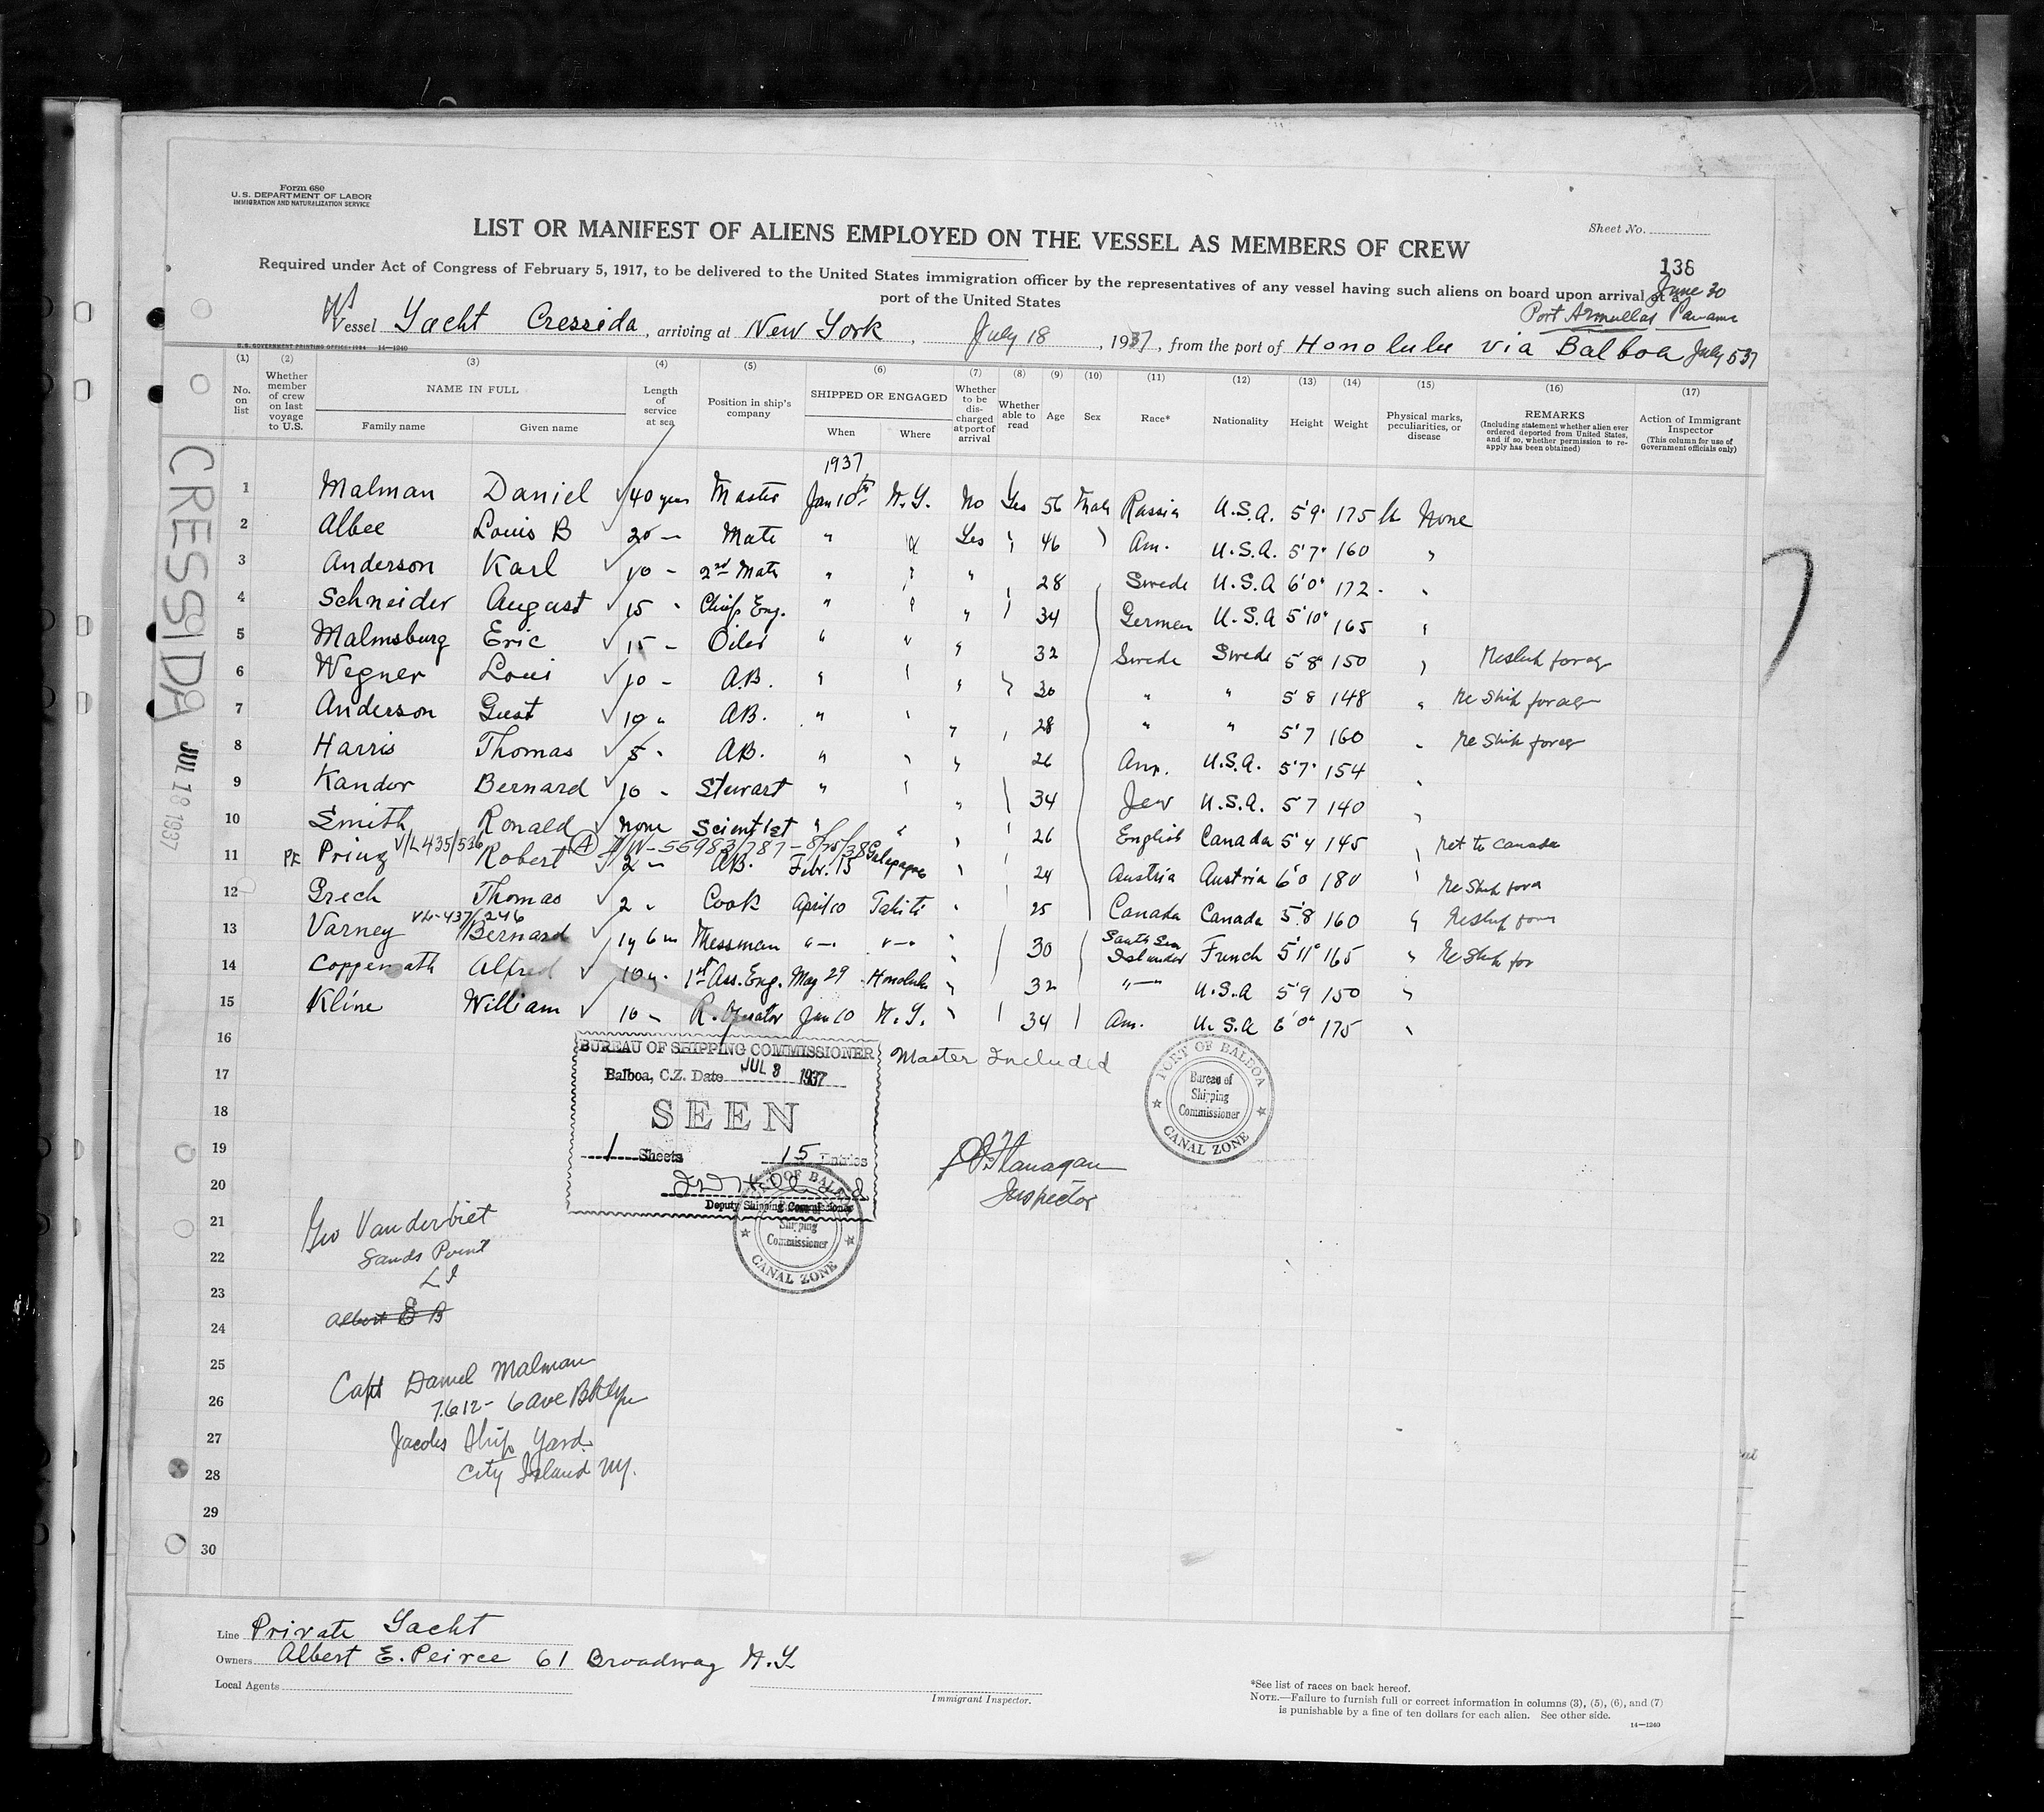 Form 680
U. S. DEPARTMENT OF LABOR
IMMIGRATION AND NATURALIZATION SERVICE
Sheet No.
LIST OR MANIFEST OF ALIENS EMPLOYED ON THE VESSEL AS MEMBERS OF CREW
138
Required under Act of Congress of February 5, 1917, to be delivered to the United States immigration officer by the representatives of any vessel having such aliens on board upon arrival at a
port of the United States
June 30
Port Armuellas Panama
Vessel Yacht Cressida, arriving at New York, July 18, 1937, from the port of Honolulu via Balboa July 5 37
U. S. GOVERNMENT PRINTING OFFICE : 1934 14—1240
(1) (2) (3) (4) (5) (6) (7) (8) (9) (10) (11) (12) (13) (14) (15) (16) (17)
No. on list
Whether member of crew on last voyage to U.S.
NAME IN FULL
Family name Given name
Length of service at sea
Position in ship's company
SHIPPED OR ENGAGED
When Where
Whether to be discharged at port of arrival
Whether able to read
Age
Sex
Race*
Nationality
Height
Weight
Physical marks, peculiarities, or disease
REMARKS
(Including statement whether alien ever ordered deported from United States, and if so, whether permission to reapply has been obtained)
Action of Immigrant Inspector
(This column for use of Government officials only)
CRESSIDA
JUL 18 1937
1937
1 Malman Daniel 40 years Master Jan 10th N.Y. No Yes 56 Male Russia U.S.A. 5'9" 175 lb None
2 Albee Louis B 20 — Mate " " Yes " 46 Am. U.S.A. 5'7" 160 "
3 Anderson Karl 10 - 2nd Mate " " " 28 Swede U.S.A 6'0" 172 "
4 Schneider August 15 " Chief Eng. " " " 34 German U.S.A 5'10" 165 "
5 Malmsburg Eric 15 - Oiler " " " 32 Swede Swede 5'8" 150 " Reship foreign
6 Wegner Loui 10 - A.B. " " " 30 " " 5'8 148 " Re Ship foreign
7 Anderson Gust 10 " AB. " " " 28 " " 5'7 160 " Re Ship foreign
8 Harris Thomas 5 " AB. " " " 26 Am. U.S.A. 5'7" 154 "
9 Kandor Bernard 10 - Stewart " " " 34 Jew U.S.A. 5 7 140 "
10 Smith Ronald none Scientist " " " 26 English Canada 5'4 145 " Ret to Canada
V/L 435/536 A 55983/787 - 8/25/38
11 Prinz Robert 2 — AB. Febr. 15 Galapagos " 24 Austria Austria 6'0 180 " Re Ship for
12 Grech Thomas 2 " Cook April 10 Tahiti " 25 Canada Canada 5'.8 160 " Reship for
V/L-437/246
13 Varney Bernard 1y 6m Messman " — " — " 30 South Sea Islander French 5'11" 165 " Re Ship for
14 Coppenrath Alfred 10 y. 1st Ass. Eng. May 29 Honolulu " 32 " — U.S.A 5'9 150 "
15 Kline William 10 - R. Operator Jan 10 N.Y. " 34 Am. U.S.A 6'0" 175 "
16
17
18
19
20
21
22
23
24
25
26
27
28
29
30
BUREAU OF SHIPPING COMMISSIONER
Balboa, C.Z. Date JUL 8 1937
SEEN
1 Sheets 15 Entries
Deputy Shipping Commissioner
Master Included
PORT OF BALBOA
Bureau of Shipping Commissioner
CANAL ZONE
Flanagan
Inspector
PORT OF BALBOA
Shipping
Commissioner
CANAL ZONE
Geo Vanderbilt
Sands Point
L I
Albert E B
Capt Daniel Malman
7612 - 6 ave Bklyn
Jacobs Ship Yard.
City Island NY.
Line Private Yacht
Owners Albert E. Peirce 61 Broadway N.Y.
Local Agents
Immigrant Inspector.
*See list of races on back hereof.
NOTE.—Failure to furnish full or correct information in columns (3), (5), (6), and (7)
is punishable by a fine of ten dollars for each alien. See other side.
14—1240